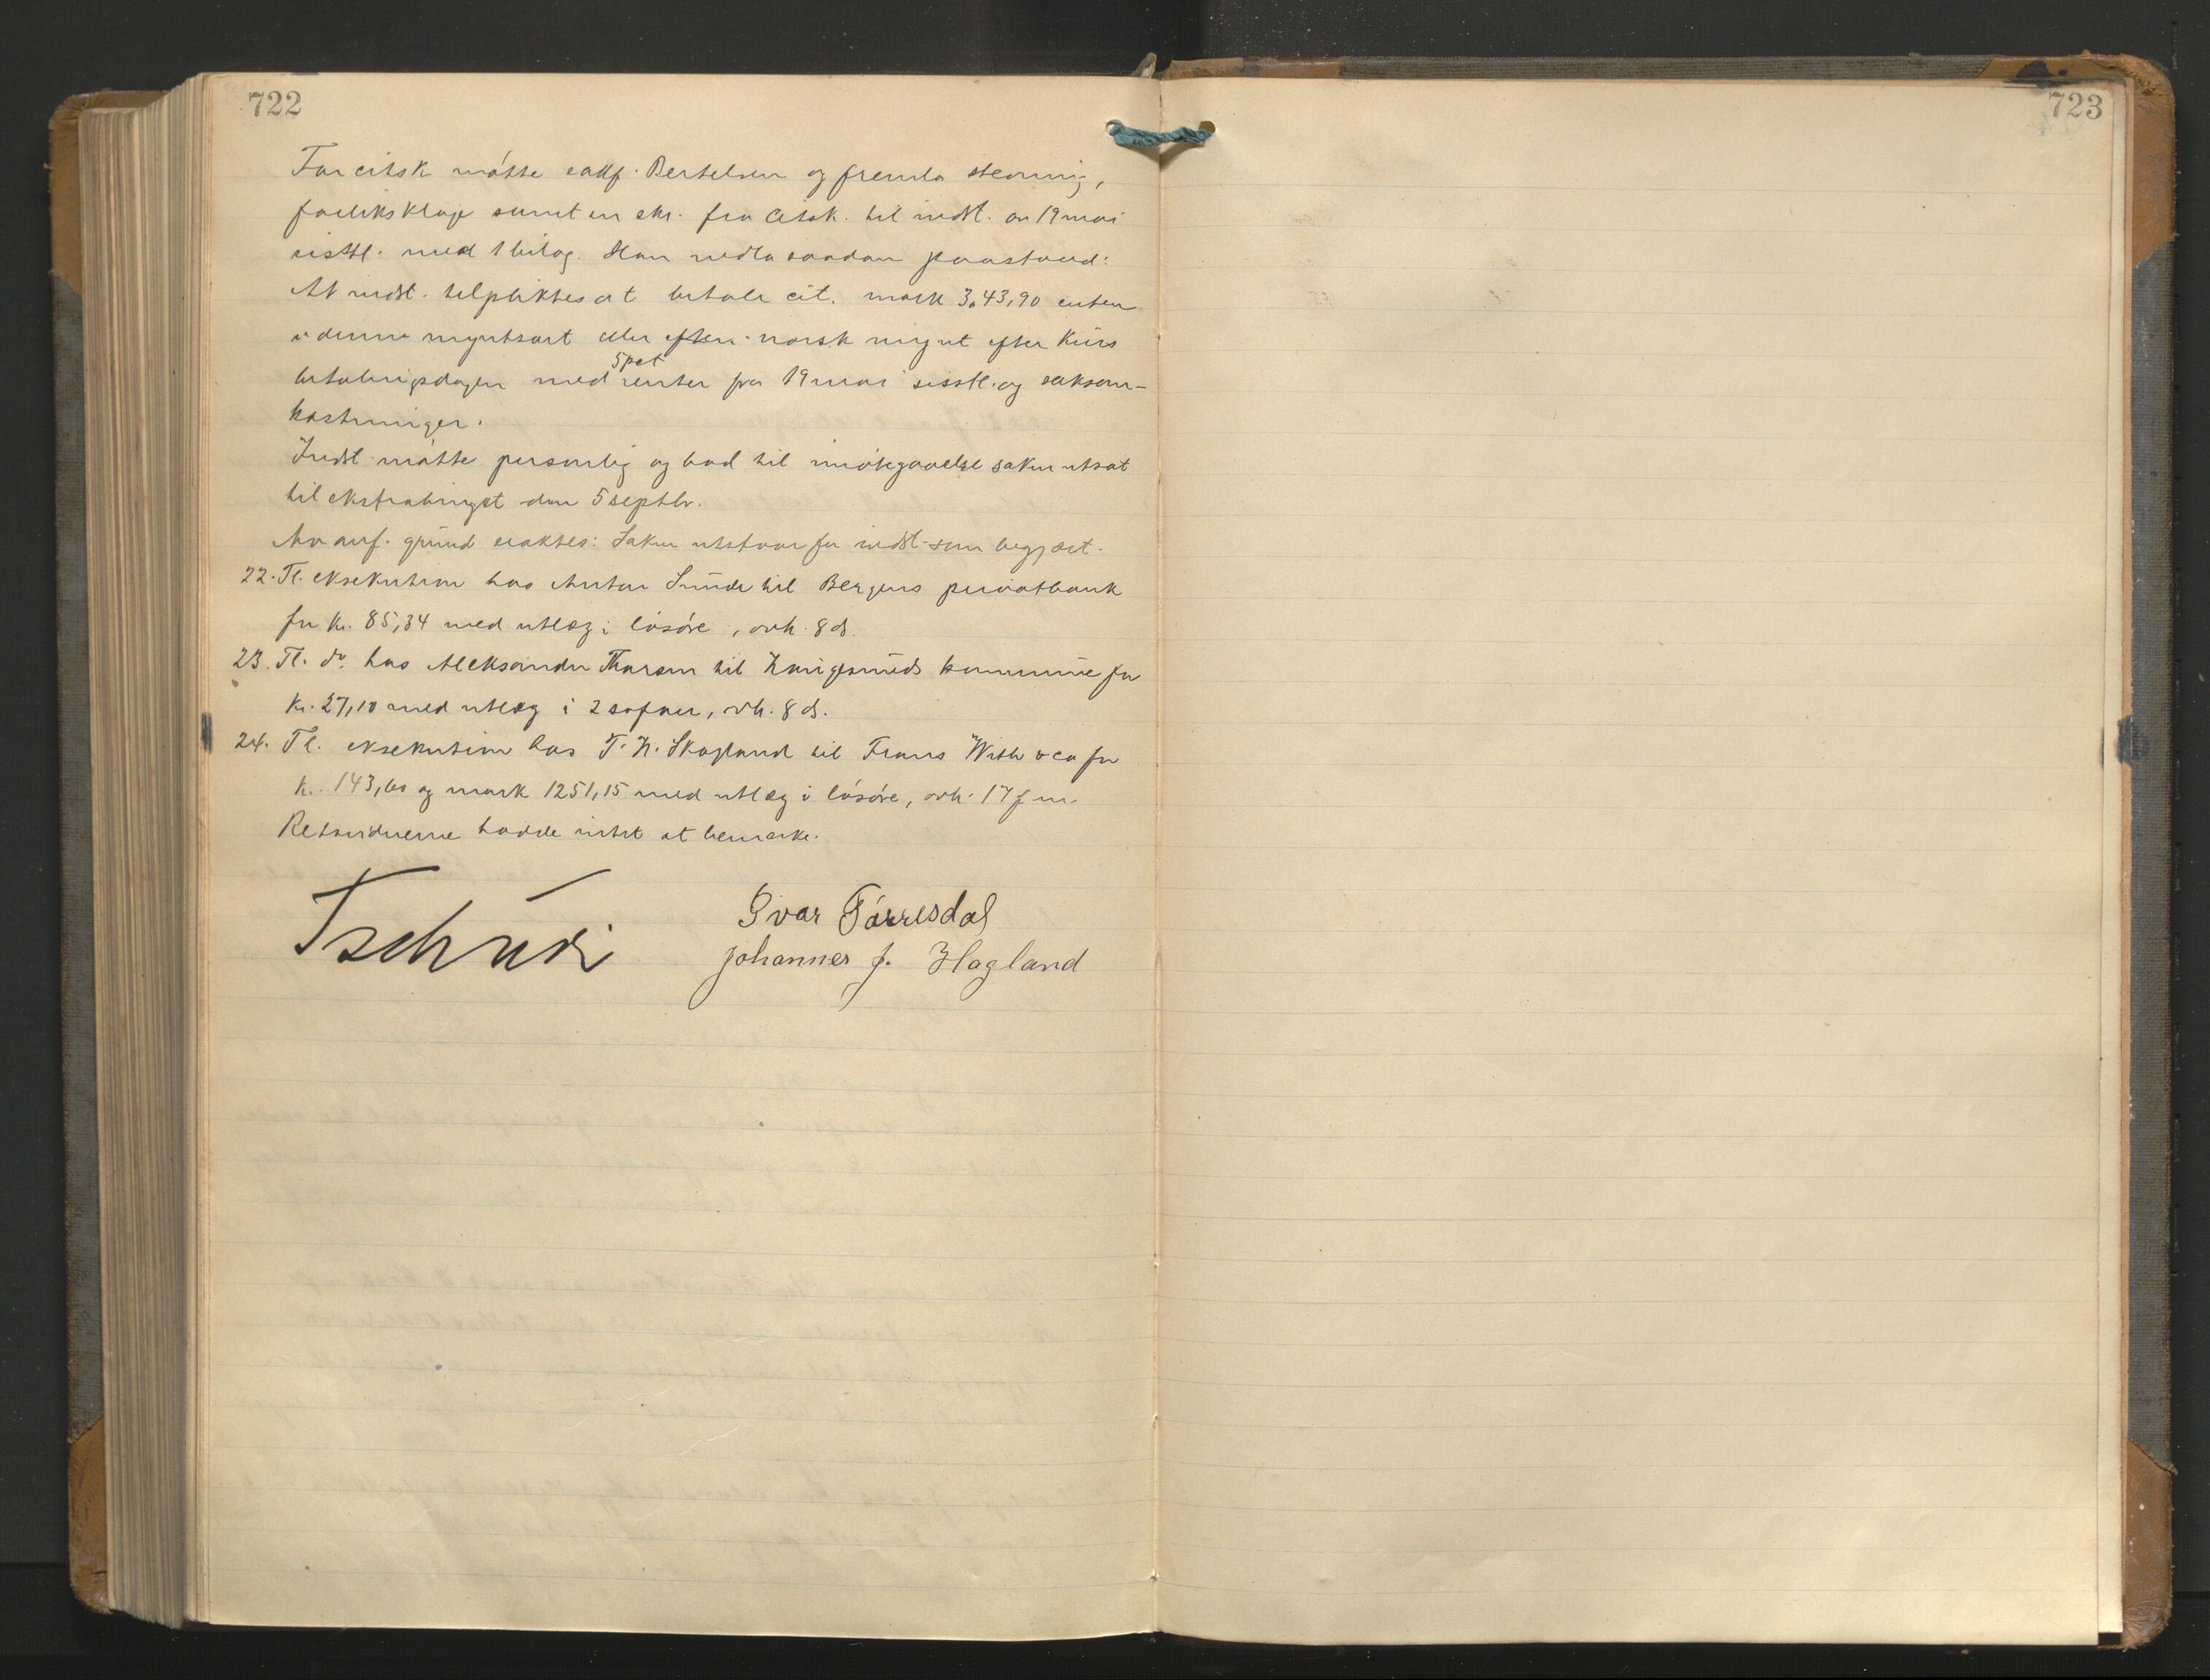 722
723
For citsk møtte sakf. Bertelsen og fremla stevning,
forliksklage samt en skr. fra citsk. til indst. av 19 mai
sisstl. med 1 bilag. Han nedla saadan paastand:
At indst. tilpliktes at betale cit. mark 343,90 enten
i denne myntsort eller efter norsk mynt efter kurs
5 pct
betalingsdagen med renter fra 19 mai sisstl. og saksom-
kostninger.
Indst møtte personlig og bad til imøtegaaelse saken utsat
til ekstratinget den 5 septbr.
Av anf. grund eraktes: Saken utstaar for indst. som begjært.
22. Tl. eksekution hos Anton Sunde til Bergens privatbank
for kr. 85,34 med utlæg i løsøre, avh. 8 ds.
23. Tl. do. hos Aleksander Thorsen til Haugesunds kommune for
kr. 27,10 med utlæg i 2 sofaer, avh. 8 ds.
24. Tl. eksekution hos T. H. Skogland til Frans With & co for
kr. 143,60 og mark 1251,15 med utlæg i løsøre, avh. 17 f. m.
Retsvidnerne hadde intet at bemærke.
Tschudi
Ivar Tørresdal
Johannes J. Hagland